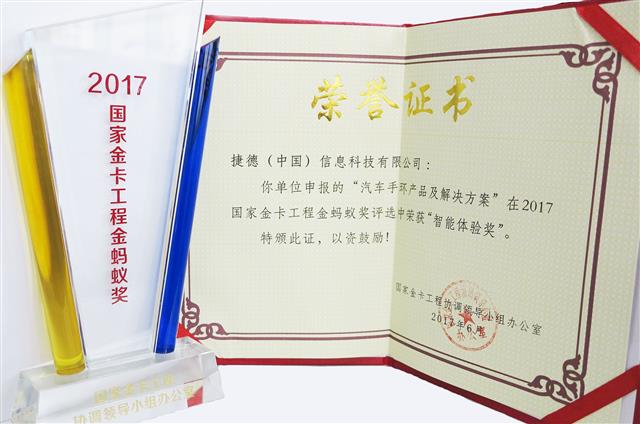 2017
国家金卡工程金蚂蚁奖
国家金卡工程
协调领导小组办公室
荣誉证书
捷德（中国）信息科技有限公司：
你单位申报的“汽车手环产品及解决方案”在2017
国家金卡工程金蚂蚁奖评选中荣获“智能体验奖”。
特颁此证，以资鼓励！
国家金卡工程协调领导小组办公室
2017年6月